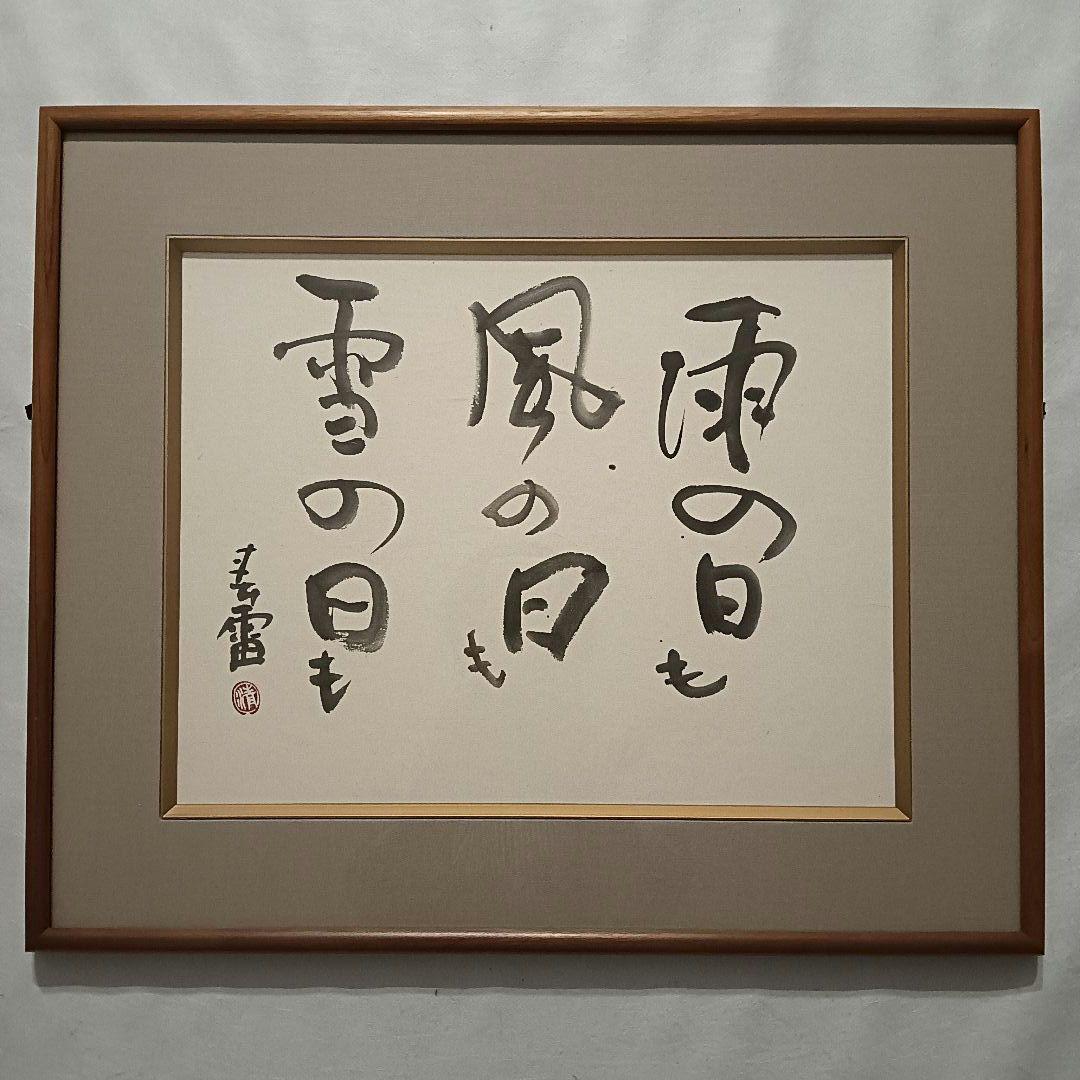 雨の日も
風の日も
雪の日も
春雷